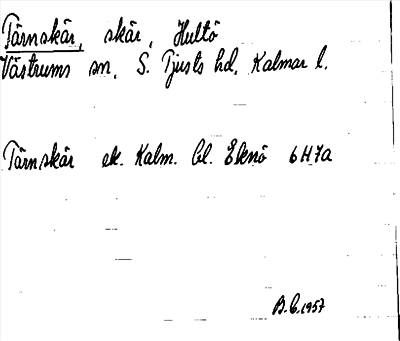 Tärnskär, skär, Hultö
Västrums sn, S. Tjusts hd, Kalmar l.
Tärnskär ek. Kalm. bl. Eknö 6H7a
B.C. 1957